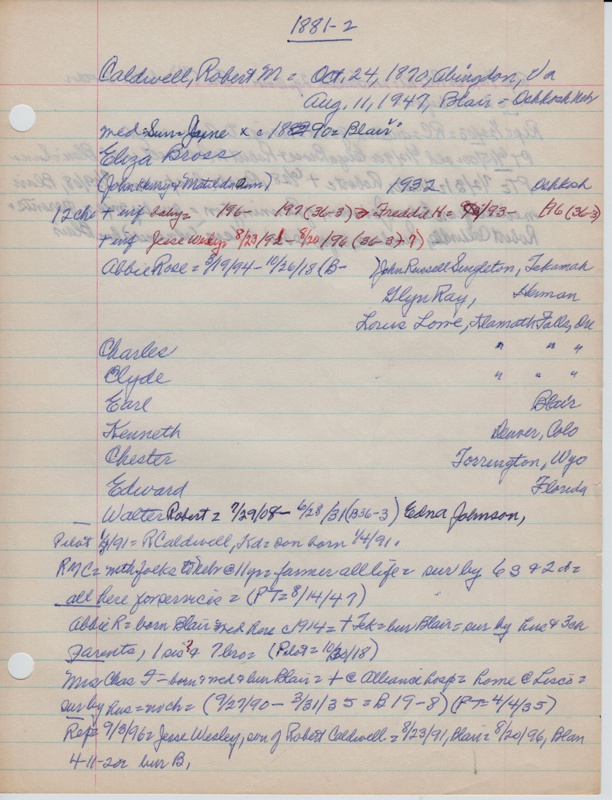 1881-2
Caldwell, Robert M = Oct. 24, 1870, Abingdon, Va
Aug. 11, 1947, Blair = Oshkosh Neb
med = Sun Jaine x c 1890 = Blair
Eliza Bross
(John Henry & Matilda Ann) 1932 Oshkosh
12 che + inf 196- 197 (36-3) Freddie H = /93- /16 (36-3)
+ inf Jesse Wesley 8/23/91 - 8/20/96 (36-3)+7)
Abbie Rose = 3/19/94 - 10/26/18 (B- ) John Russell Singleton, Tekamah
Glyn Ray, Herman
Louis Lowe, Klamath Falls, Ore
Charles " " "
Clyde " " "
Earl Blair
Kenneth Denver, Colo
Chester Torrington, Wyo
Edward Florida
Walter Robert = 7/29/08 - 6/28/31 (B36-3) Edna Johnson,
Pilot 1/8/91 = R Caldwell, Kd = son born 1/4/91.
RMC = with folks to Neb @ 11 yr = farmer all life = sur by 6 S & 2 d =
all here for service = (PT = 8/14/47)
Abbie R = born Blair = med here c 1914 = + Tek = bur Blair = sur by hus & 3 ch
Parents, 1 sis? & 7 bro = (Pilot = 10/30/18)
Mrs Chas F = born & med & bur Blair = + @ Alliance hosp = home @ Lisco =
sur by hus = no ch = (9/27/90 - 3/31/35 = B 19-8) (PT = 4/4/35)
Rep = 9/3/96 = Jesse Wesley, son of Robert Caldwell = 8/23/91, Blair = 8/20/96, Blair
4-11-28 bur B,